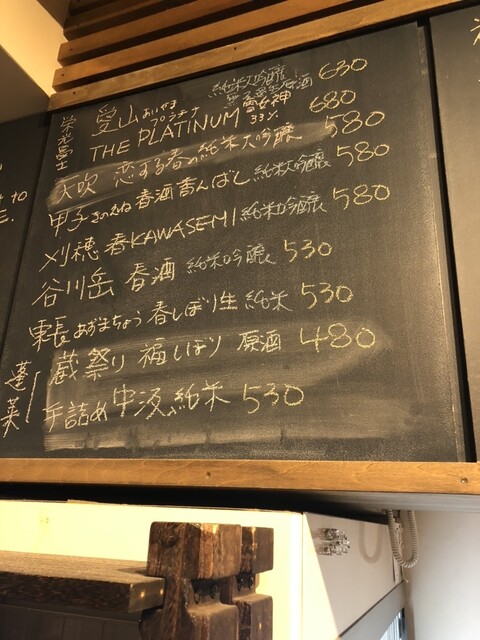 栄光冨士
愛山 あいやま 純米大吟醸 無濾過生原酒 630
THE PLATINUM プラチナ 雪女神 33% 680
天吹 恋する春の純米大吟醸 580
甲子 きのえね 春酒 香んばし 純米大吟醸 580
刈穂 春KAWASEMI 純米吟醸 580
谷川岳 春酒 純米吟醸 530
東長 あずまちょう 春しぼり生 純米 530
蓬莱
蔵祭り 福しぼり 原酒 480
手詰め中汲 純米 530
to
E.